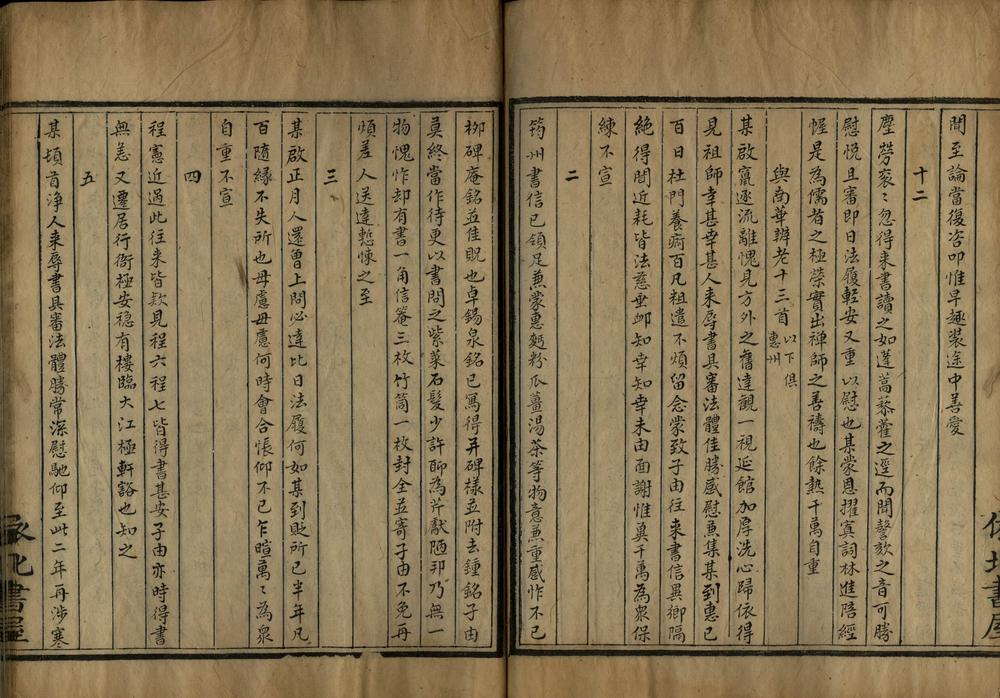 聞至論當復咨叩惟早趣裝途中善愛
十二
塵勞衮〻忽得来書讀之如蓬蒿藜藿之逕而聞謦欬之音可勝
慰悦且審即日法履輕安又重以慰也某蒙恩擢寘詞林進陪經
幄是為儒者之極榮實出禅師之善禱也餘熱千萬自重
與南華辯老十三首以下俱惠州
某啟竄逐流離愧見方外之舊達觀一視延館加厚洗心歸依得
見祖師幸甚幸甚人来辱書具審法體佳勝感慰兼集某到惠已
百日杜門養痾百凡粗遣不煩留念蒙致子由往来書信異郷隔
絶得聞近耗皆法慈垂䘏知幸知幸未由面謝惟冀千萬為衆保
練不宣
二
筠州書信已領足兼蒙惠麪粉瓜薑湯茶等物意兼重感怍不已
栁碑庵銘並佳貺也卓錫泉銘已寫得并碑樣並附去鍾銘子由
莫終當作待更以書問之紫菜石髮少許聊為芹獻陋邦乃無一
物愧怍却有書一角信菴三枚竹筒一枚封全並寄子由不免再
煩差人送達慙悚之至
三
某啟正月人還曽上問必達比日法履何如某到貶所已半年凡
百隨緣不失所也毋慮毋慮何時會合悵仰不已乍暄萬〻為衆
自重不宣
四
程憲近過此往来皆欵見程六程七皆得書甚安子由亦時得書
無恙又遷居行衙極安穏有樓臨大江極軒豁也知之
五
某頓首浄人来辱書具審法體勝常深慰馳仰至此二年再涉寒